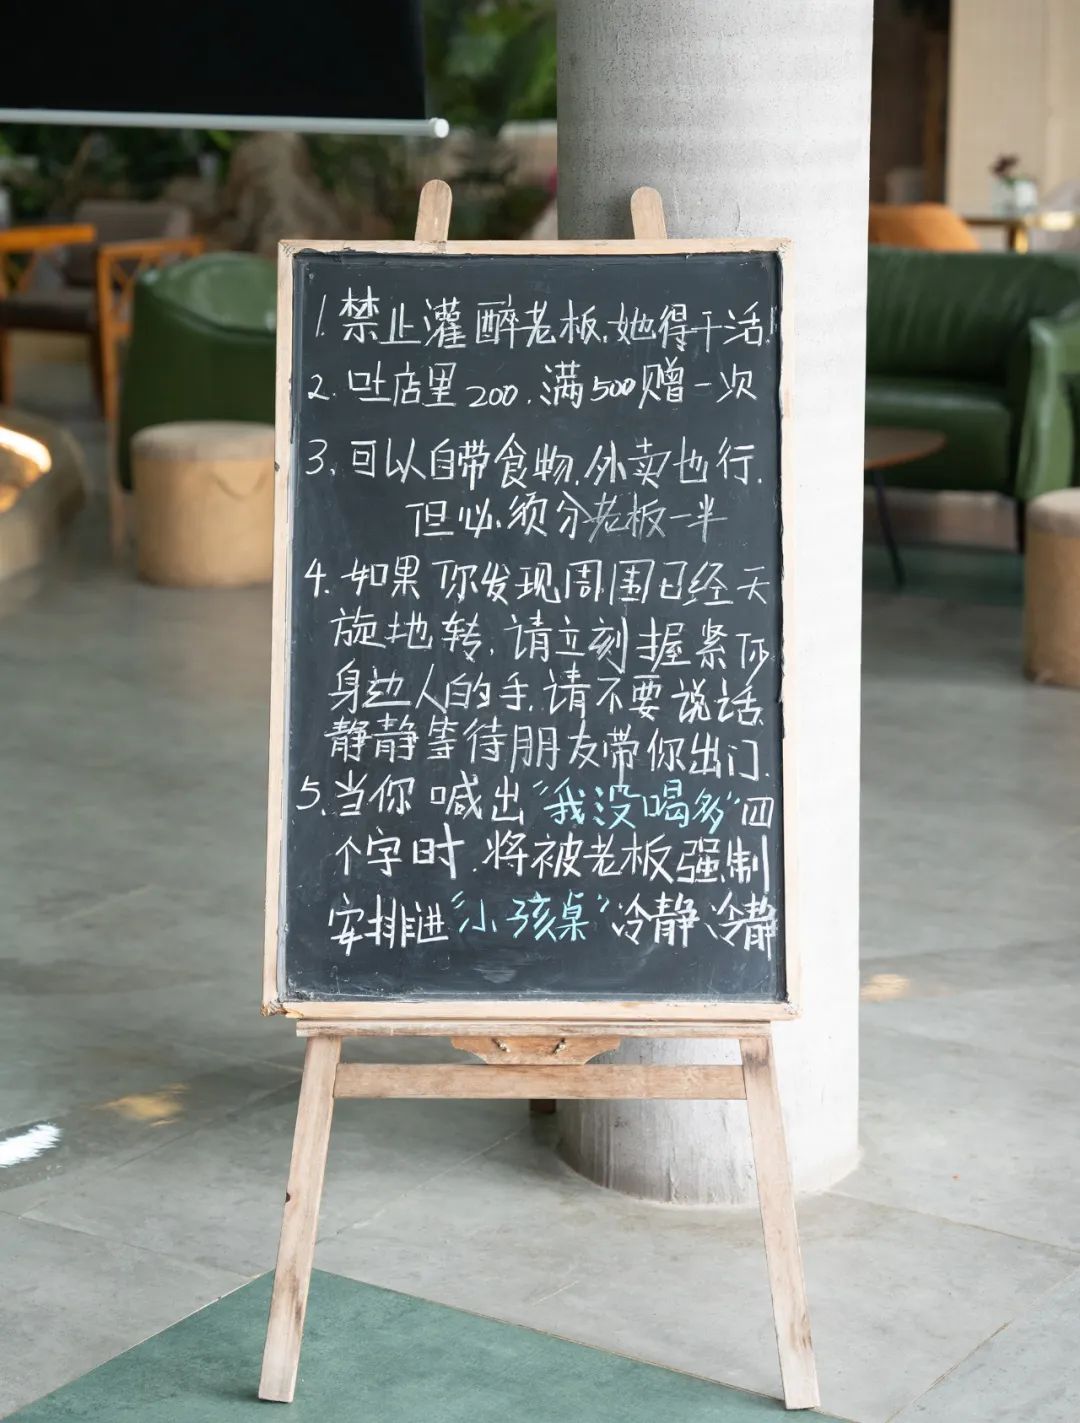 1.禁止灌醉老板,她得干活!
2.吐店里200.满500赠一次
3.可以自带食物.外卖也行.
但必须分老板一半
4.如果你发现周围已经天
旋地转.请立刻握紧你
身边人的手.请不要说话.
静静等待朋友带你出门.
5.当你喊出“我没喝多”四
个字时.将被老板强制
安排进“小孩桌”冷静冷静